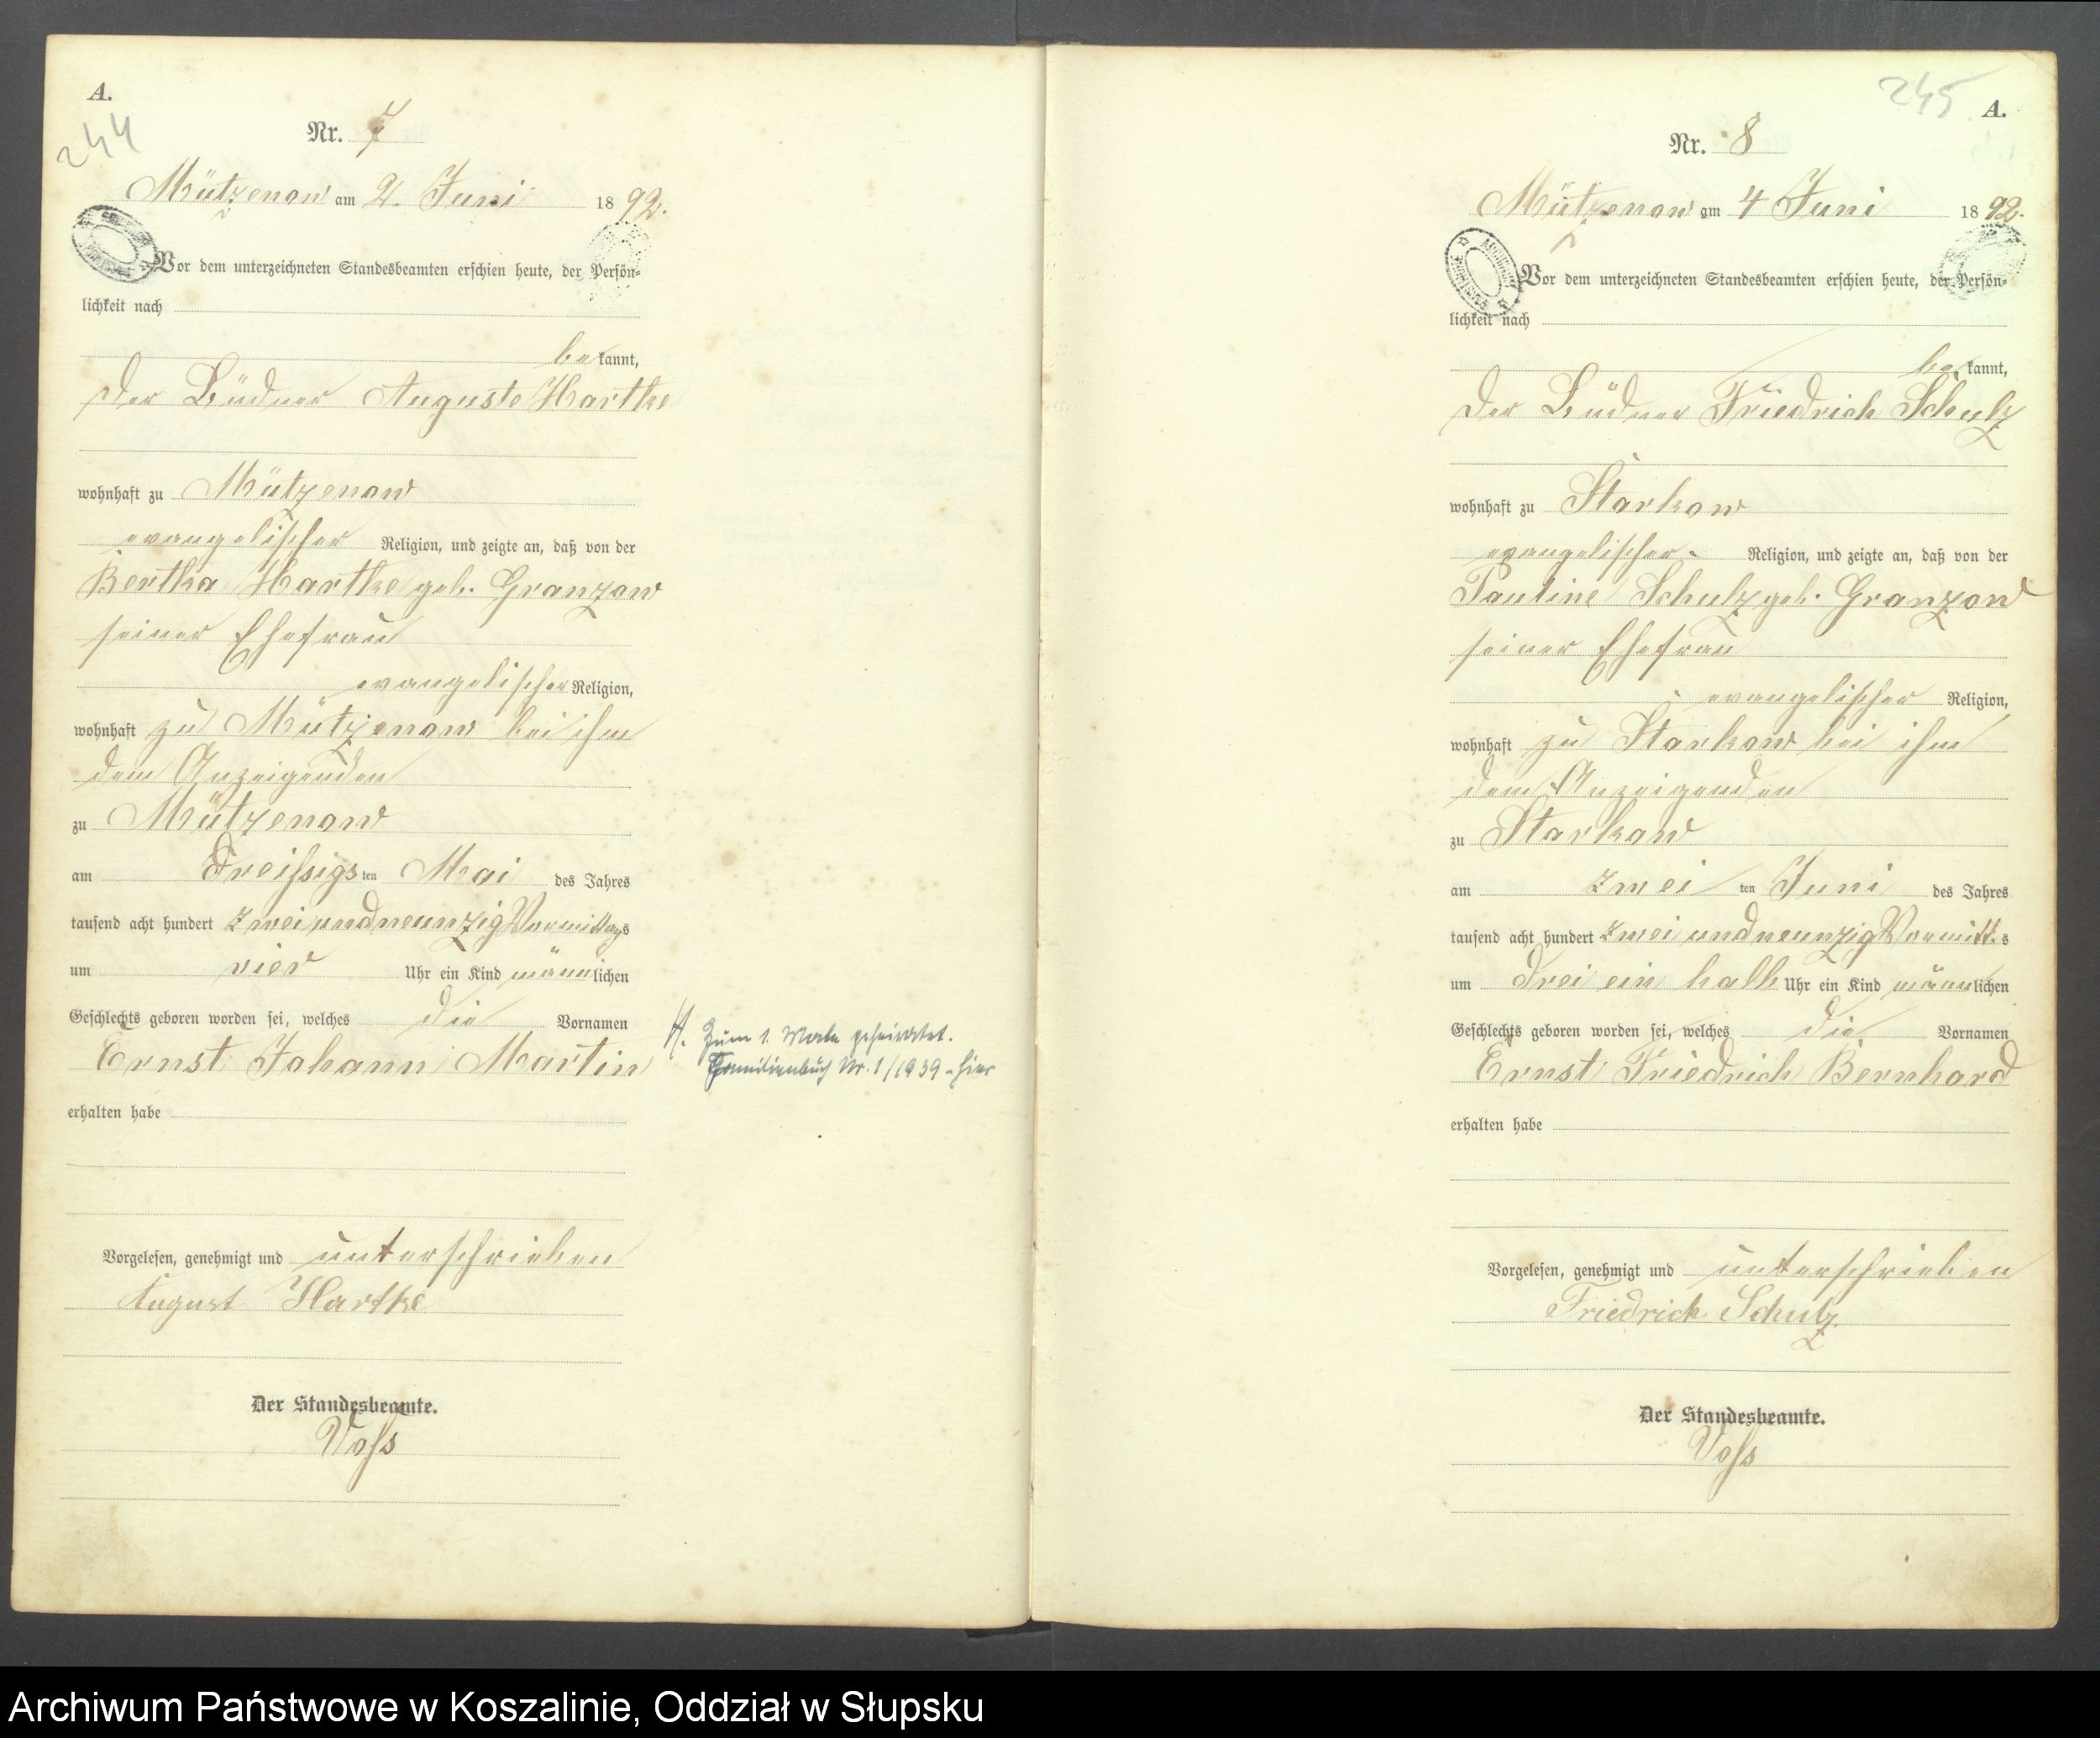 A.
244
Nr. 7
Mützenow am 2. Juni 1892.
Vor dem unterzeichneten Standesbeamten erschien heute, der Persön-
lichkeit nach
bekannt,
der Büdner Auguste Hartke
wohnhaft zu Mützenow
evangelischer Religion, und zeigte an, daß von der
Bertha Hartke geb. Granzow
seiner Ehefrau
evangelischer Religion,
wohnhaft zu Mützenow bei ihm
dem Anzeigenden
zu Mützenow
am dreißigsten Mai des Jahres
tausend acht hundert zwei und neunzig Vormittags
um vier Uhr ein Kind männlichen
Geschlechts geboren worden sei, welches die Vornamen
Ernst Johann Martin
erhalten habe
Vorgelesen, genehmigt und unterschrieben
August Hartke
Der Standesbeamte.
Voß
H. Zum 1. Male geheiratet.
Familienbuch Nr. 1/1939 - hier
245
A.
Nr. 8
Mützenow am 4 Juni 1892.
Vor dem unterzeichneten Standesbeamten erschien heute, der Persön-
lichkeit nach
bekannt,
der Büdner Friedrich Schulz
wohnhaft zu Starkow
evangelischer Religion, und zeigte an, daß von der
Pauline Schulz geb. Granzow
seiner Ehefrau
evangelischer Religion,
wohnhaft zu Starkow bei ihm
dem Anzeigenden
zu Starkow
am zweiten Juni des Jahres
tausend acht hundert zwei und neunzig Vormitt.s
um drei ein halb Uhr ein Kind männlichen
Geschlechts geboren worden sei, welches die Vornamen
Ernst Friedrich Bernhard
erhalten habe
Vorgelesen, genehmigt und unterschrieben
Friedrich Schulz
Der Standesbeamte.
Voß
Archiwum Państwowe w Koszalinie, Oddział w Słupsku